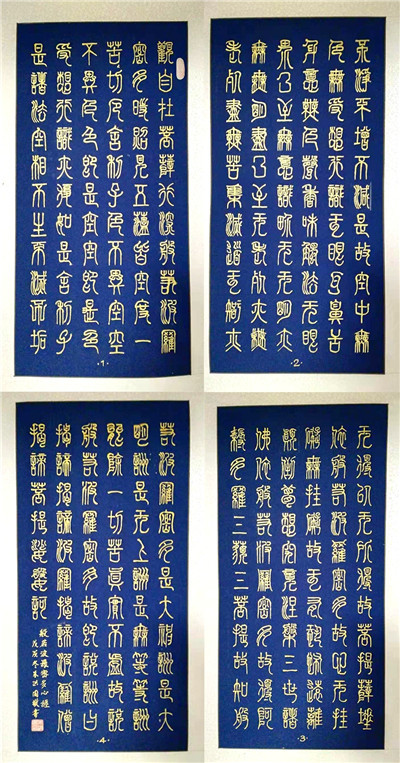 觀自在菩薩行深般若波羅
蜜多時照見五蘊皆空度一
苦切厄舍利子色不異空空
不異色色即是空空即是色
受想行識亦復如是舍利子
是諸法空相不生不滅不垢
·1·
不淨不增不減是故空中無
色無受想行識无眼耳鼻舌
身意無色聲香味觸法无眼
界乃至無意識界无无明亦
無無明盡乃至无老死亦無
老死盡無苦集滅道无智亦
·2·
无得以无所得故菩提薩埵
依般若波羅蜜多故心无罣
礙無罣礙故无有恐怖遠離
顛倒夢想究竟涅槃三世諸
佛依般若波羅蜜多故得阿
耨多羅三藐三菩提故知般
·3·
若波羅蜜多是大神咒是大
明咒是无上咒是無等等咒
能除一切苦真實不虛故說
般若波羅蜜多故即說咒曰
揭諦揭諦波羅揭諦波羅僧
揭諦菩提薩婆訶
般若波羅蜜多心經
戊戌冬
·4·